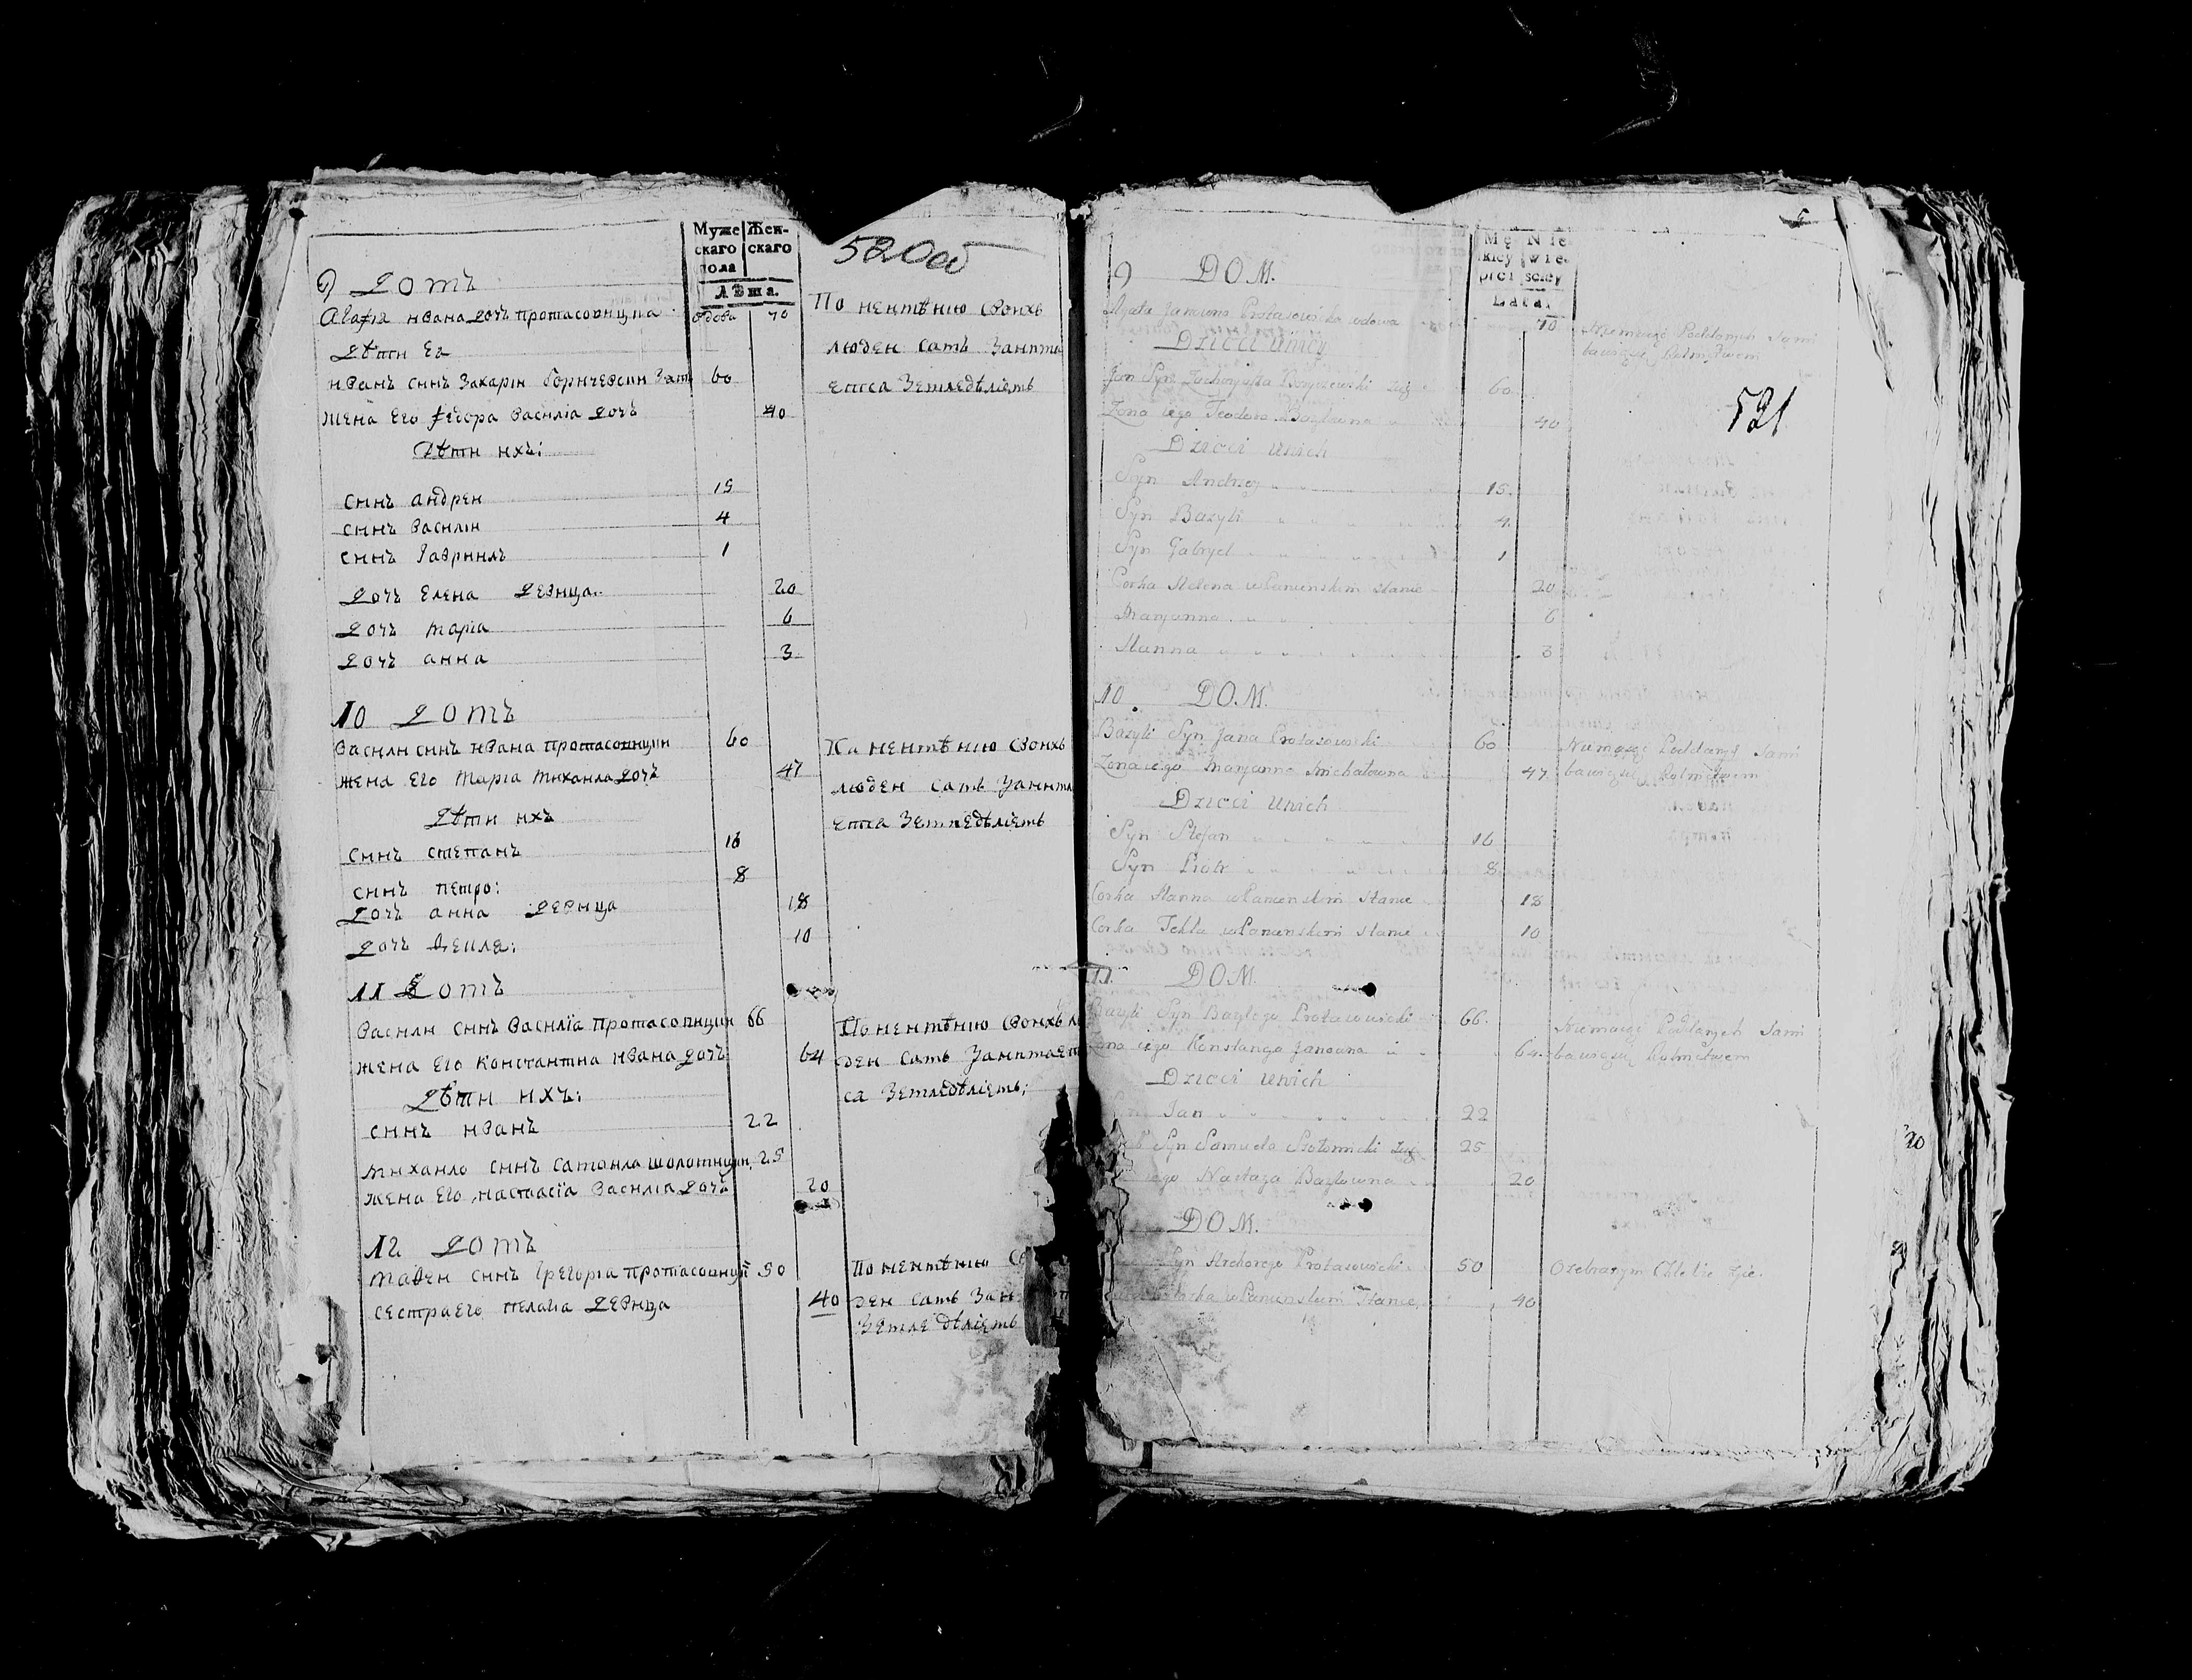 Муже
скаго
пола
Жен-
скаго
Лѣта.
520об
9 Домъ
Агафiя Ивана дочъ Протасовицка вдова 70
Дѣти Ег
Иванъ синъ Захарiи 60
жена Его Федора Василiа дочъ 40
Дѣти ихъ:
синъ Андреи 15
синъ Василiи 4
синъ Гавриилъ 1
дочъ Елена девица. 20
дочъ Марiа 6
дочъ Анна 3
По неимѣнию своихъ
людеи самъ Занима
етса Земледѣлiемъ
10 Домъ
Васили синъ Ивана Протасовицки 60
жена Его Марiа Михаила дочъ 47
Дѣти ихъ
синъ Степанъ 16
синъ Петро: 8
дочъ Анна девица 18
дочъ 10
По неимѣнию своихъ
людеи самъ Занима
етса Земледѣлiемъ
11 Домъ
Васили синъ Василiа Протасовицки 66
жена Его Константиа Ивана дочъ 64
Дѣти ихъ:
синъ Иванъ 22
Михаило синъ Самоила Шолотицки 25
жена Его Настасiа Василiа дочъ 20
По неимѣнию своихъ лю
деи самъ Занимает
са Земледѣлiемъ;
12 Домъ
Матеи синъ Грегорiа Протасовицкi 50
сестра Его Пелагiа девица 40
По неимѣнию
деи самъ
Земледѣлiемъ
Mę
skiey
płci
Nie
wie-
sciey
Lata.
521
9 DOM.
Agata Janowna Protasowicka wdowa 70
Dzieci U niey
Jan Syn Zacharyasza 60
Zona iego Teodora Bazylowna 40
Dzieci U nich
Syn Andrzey 15.
Syn Bazyli 4.
Syn Gabryel 1
Corka Helena w Panienskim stanie 20
Maryanna 6
Hanna 3
Niemaiąc Poddanych Sami
bawią się Rolnictwem
10 DOM.
Bazyli Syn Jana Protasowicki 60
Zona iego Maryanna Michałowna 47
Dzieci U nich
Syn Stefan 16
Syn Piotr 8
Corka Hanna w Panienskim stanie 18
Corka Tekla w Panienskim stanie 10
Niemaiąc Poddanych Sami
bawią się Rolnictwem
11. DOM.
Bazyli Syn Bazylego Protasowicki 66.
Zona iego Konstancya Janowna 64.
Dzieci U nich
Jan 22
Syn Samuela 25
iego Nastazya Bazylowna 20
Niemaiąc Poddanych Sami
bawią się Rolnictwem
DOM.
Syn Protasowicki 50
w Panienskim Stanie 40
20